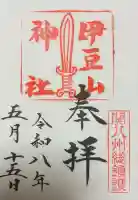 伊豆山
神社
関八州総鎮護
奉拝
令和八年
五月十五日